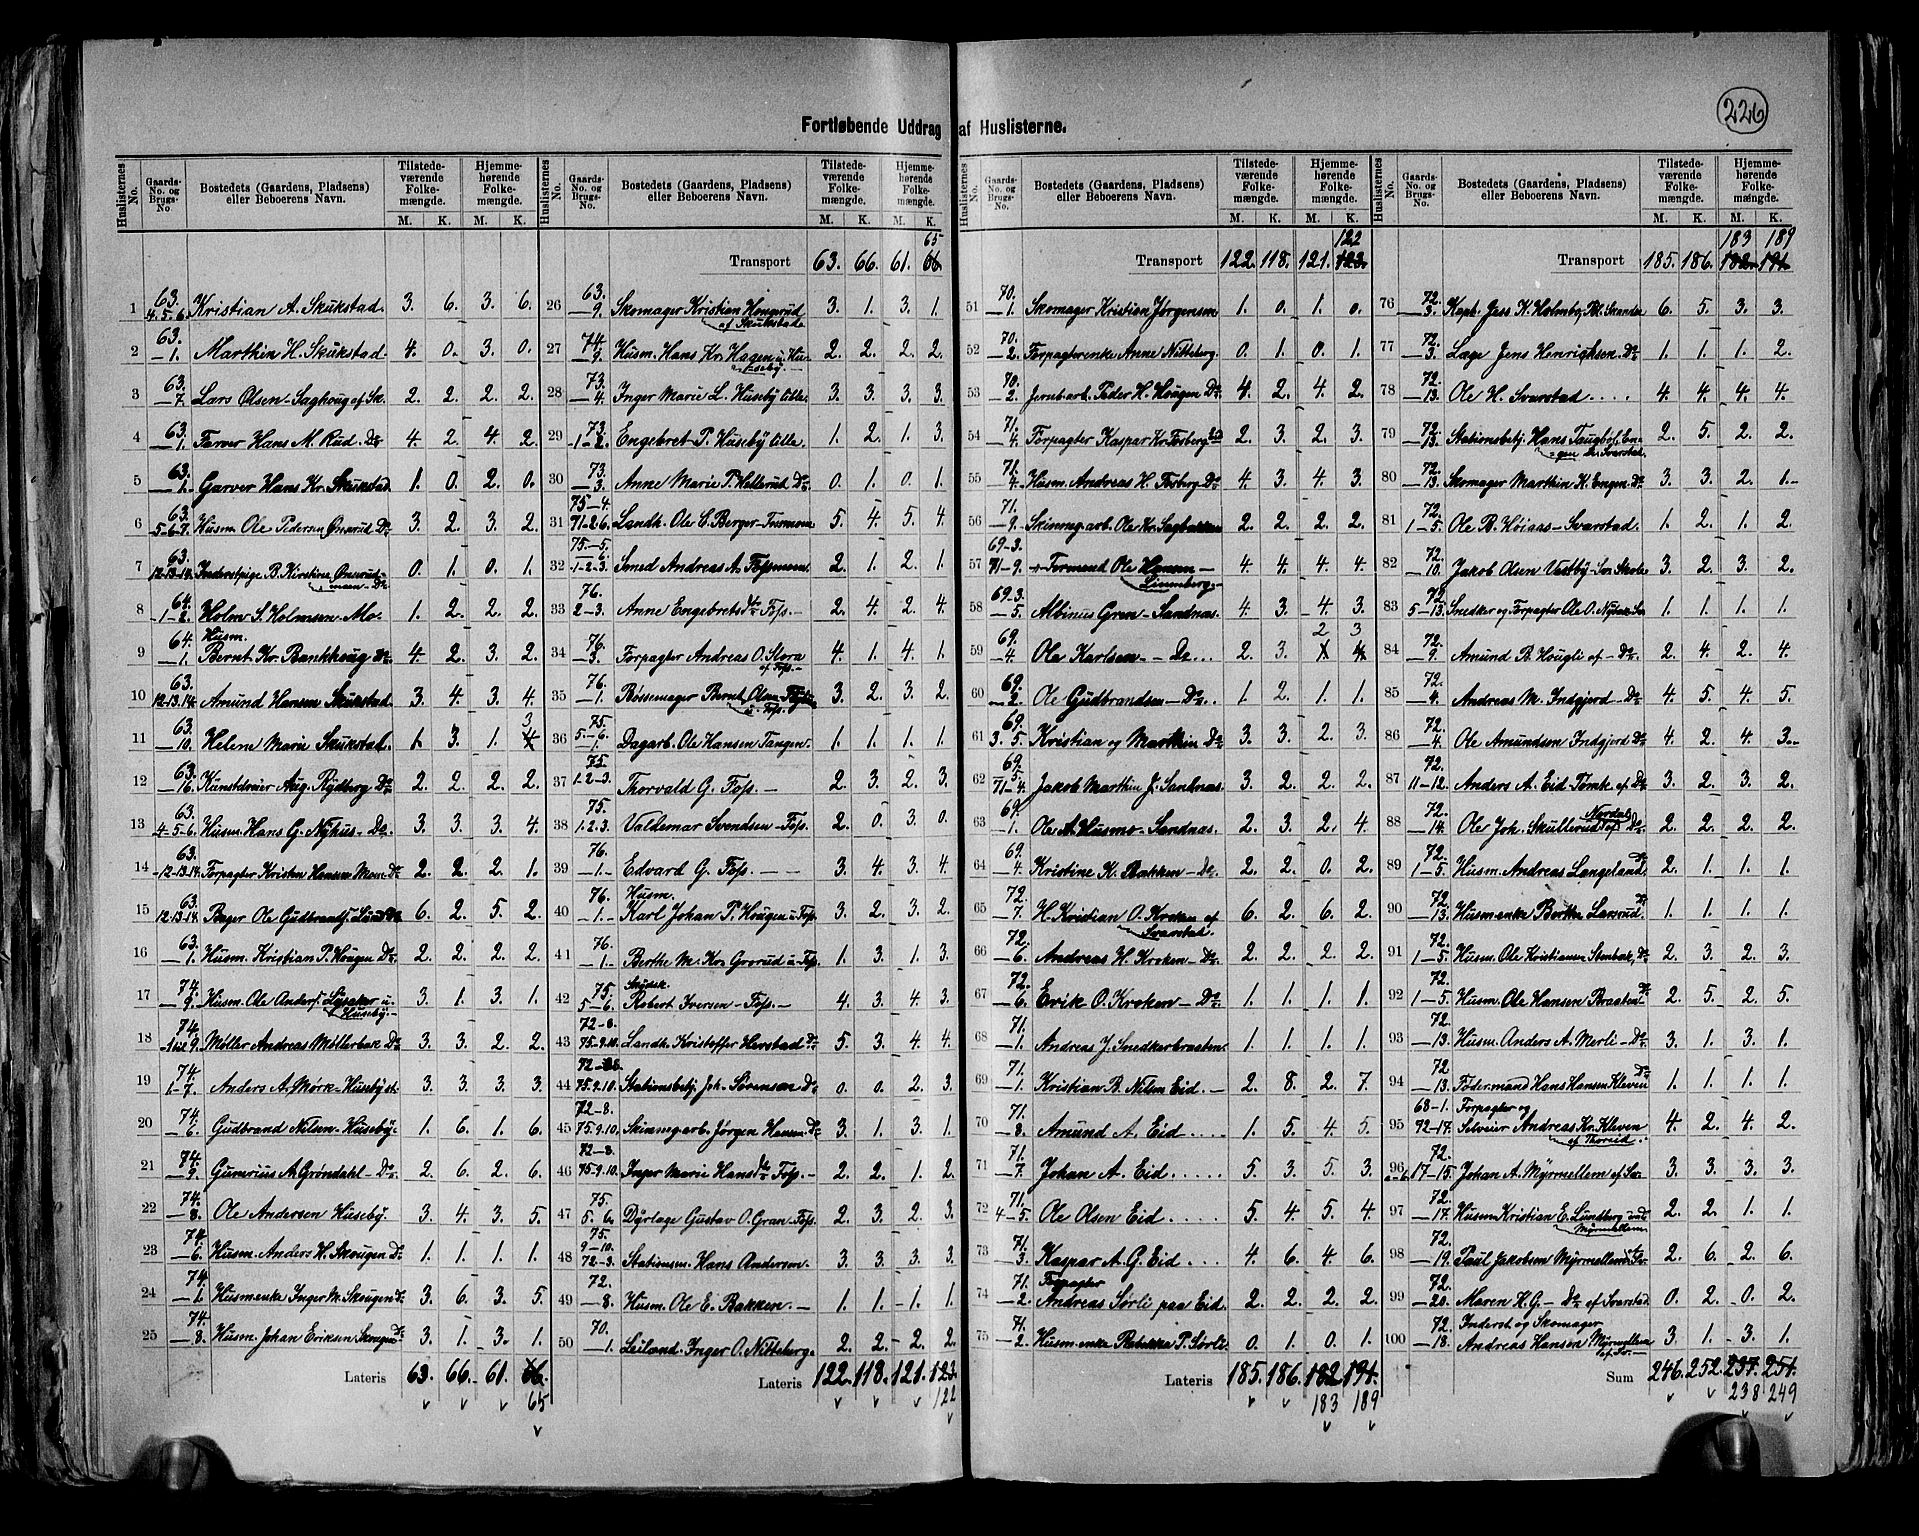 226
Fortløbende Uddrag af Huslisterne.
Huslisternes No. | Gaards-No. og Brugs-No. | Bostedets (Gaardens, Pladsens) eller Beboerens Navn. | Tilstedeværende Folkemængde. M. K. | Hjemmehørende Folkemængde. M. K.
1 63. 4.5.6. Kristian A. Skukstad. 3. 6. 3. 6.
2 63. 1. Marthin H. Skukstad. 4. 0. 3. 0.
3 63. 7. Lars Olsen Saghoug af Sk. 2. 2. 2. 2.
4 63. 1. Farver Hans M. Rud. Do 4. 2. 4. 2.
5 63. 1. Garver Hans Kr. Skukstad 1. 0. 2. 0.
6 63. 5-6-7. Husm. Ole Pedersen Ønsrud Do 3. 2. 3. 2.
7 63. 12-13-14. Inderstpige B. Kirstine Do 0. 1. 0. 1.
8 64. 1-2. Holm S. Holmsen Mo 1. 2. 2. 2.
9 64. 1. Husm. Bernt Kr. Bankhoug Do 4. 2. 3. 2.
10 63. 12.13.14. Amund Hansen Skukstad. 3. 4. 3. 4.
11 63. 10. Helene Marie Skukstad. 1. 3. 1. 4 3
12 63. 16. Kunstdreier Aug. Rydberg Do 2. 2. 2. 2.
13 63. 4-5-6. Husm. Hans G. Nyhus Do 3. 3. 3. 4.
14 63. 12-13.14. Forpagter Kristen Hansen Do 2. 2. 2. 1.
15 63. 12.13.14. Bager Ole 6. 2. 5. 2.
16 63. 1. Husm. Kristian P. Hougen Do 2. 2. 2. 2.
17 74. 9. Husm. Ole Anders. Lysaker u. Huseby. 3. 1. 3. 1.
18 74. 9. Møller Andreas Møllerbak Do 3. 3. 2. 2.
19 74. 1-7. Anders A. Mørk Huseby st. 3. 3. 3. 3.
20 74. 6. Gudbrand Nilsen Huseby. 1. 6. 1. 6.
21 74. 9. Gunerius A. Grøndahl Do 2. 6. 2. 6.
22 74. 8. Ole Andersen Huseby. 3. 4. 3. 5.
23 74. 6. Husm. Anders H. Skougen Do 1. 1. 1. 1.
24 74. 1. Husmenke Inger M. Skougen Do 3. 6. 3. 5.
25 74. 8. Husm. Johan Eriksen Skougen Do 3. 1. 3. 1.
Lateris 63. 66. 61. 66. 65
Transport 63. 66. 61. 66. 65
26 63. 9. Skomager Kristian Hougerud af Skukstad. 3. 1. 3. 1.
27 74. 9. Husm. Hans Kr. Hagen u. Huseby. 2. 2. 2. 2.
28 73. 4. Inger Marie L. Huseby lille 3. 3. 3. 3.
29 73. 1-2. Engebret P. Huseby lille 1. 2. 1. 3.
30 73. 3. Anne Marie P. Hellerud Do 0. 1. 0. 1.
31 75-4. 71-2.6. Landh. Ole C. Berger 5. 4. 5. 4.
32 75.-5. 6. 1-2-3. Smed Andreas A. Fossmoen 2. 1. 2. 1.
33 76. 2-3. Anne Engebretsdtr Foss. 2. 4. 2. 4.
34 76. 3. Forpagter Andreas O. Stora af Foss. 4. 1. 4. 1.
35 76. 1. Bøssemager Bernt Olsen u. Foss. 3. 2. 3. 2.
36 75. 5-6. 1. Dagarb. Ole Hansen Tangen 1. 1. 1. 1.
37 75. 1.2-3. Thorvald G. Foss. 2. 3. 2. 3.
38 75. 1.2.3. Valdemar Svendsen Foss. 2. 0. 3. 0.
39 76. 1. Edvard G. Foss. 3. 4. 3. 4.
40 76. 1. Husm. Karl Johan P. Hougen u. Foss. 3. 2. 3. 2.
41 76. 1. Berthe M. Kr. Grorud u. Foss. 1. 3. 1. 3.
42 75. 5-6. Robert Iversen Foss. 4. 3. 4. 3.
43 72-8. 75.9.10. Landh. Kristoffer Herstad Do 5. 3. 4. 4.
44 72-8. 75.9.10. Stationsbetj. Joh. Sørensen Do 0. 0. 2. 3.
45 72-8. 75.9.10. Skinnegarb. Jørgen Hansen Do 3. 1. 3. 1.
46 72-8. 75.9.10. Inger Marie Hansdtr Foss. 2. 2. 1. 2.
47 75. 5.6. Dyrlæge Gustav O. Gran Foss. 2. 3. 2. 3.
48 75. 9-10. 72-3. Stationsm. Hans Andersen. 3. 3. 3. 3.
49 72. 8. Husm. Ole E. Bakken. 1. 1. 1. 1.
50 70. 1. Leiland. Inger O. Nitteberg. 2. 2. 2. 2.
Lateris 122. 118. 121. 123. 122
Transport 122. 118. 121. 123. 122
51 70. 1. Skomager Kristian Jørgensen 1. 0. 1. 0.
52 70. 2. Forpagterenke Anne Nitteberg. 0. 1. 0. 1.
53 70. 2. Jernb.arb. Peder H. Hougen Do 4. 2. 4. 2.
54 71. 4. Forpagter Kaspar Kr. Fosberg Eid 2. 3. 2. 3.
55 71. 4. Husm. Andreas H. Fosberg Do 4. 3. 4. 3.
56 71. 9. Skinneg.arb. Ole Kr. Sagbakken 2. 2. 2. 2.
57 69-3. 71-9. Formand Ole Hansen Linneberg. 4. 4. 4. 4.
58 69.3. 5. Albinus Gren Sandnas. 4. 3. 4. 3.
59 69. 4. Ole Karlsen Do 2. 3. 2 3
60 69. 2. Ole Gudbrandsen Do 1. 2. 1. 1.
61 69. 3. 5. Kristian og Marthin Do 3. 3. 2. 3.
62 69. 5. 71-4. Jakob Marthin J. Sandnas. 3. 2. 2. 2.
63 69. 1. Ole A. Husmo Sandnas. 2. 3. 2. 4.
64 69. 4. Kristine K. Bakken Do 2. 2. 0. 2.
65 72. 7. H. Kristian O. Kroken af Svarstad. 6. 2. 6. 2.
66 72. 6. Andreas H. Kroken Do 2. 2. 2. 2.
67 72. 6. Erik O. Kroken Do 1. 1. 1. 1.
68 71. 1. Andreas J. Snedkerbraaten 1. 1. 1. 1.
69 71. 1. Kristian B. Nilsen Eid. 2. 8. 2. 7.
70 71. 8. Amund A. Eid 1. 5. 4. 5.
71 71. 7. Johan A. Eid 5. 3. 5. 3.
72 71. 4-5. Ole Olsen Eid 5. 4. 5. 4.
73 71. 3. Kaspar A. G. Eid 4. 6. 4. 6.
74 71. 2. Forpagter Andreas Sørli paa Eid. 2. 2. 2. 2.
75 71. 2. Husm.enke Rebekka P. Sørli. 0. 1. 0. 1.
Lateris 185. 186. 182 191. 183 189
Transport 185. 186. 182. 191. 183 189
76 72. 3. Kapt. Jess K. Holmbo, 6. 5. 3. 3.
77 72. 3. Læge Jens Henrichsen. Do 1. 1. 1. 2.
78 72. 13. Ole H. Svarstad 4. 4. 4. 4.
79 72. 13. Stationsbetj. Hans Taugbøl, Engen Do Svarstad. 2. 5. 2. 2.
80 72. 13. Skomager Marthin K. Engen Do 3. 3. 2. 1.
81 72. 1-5. Ole B. Høiaas Svarstad. 1. 2. 1. 2.
82 72. 10. Jakob Olsen Vestby Sv. Skole 3. 2. 3. 2.
83 72. 5-13. Snedker og Forpagter Ole O. 1. 1. 1. 1.
84 72. 9. Amund B. Hougli af Do 2. 4. 2. 4.
85 72. 4. Andreas M. Indgjerd Do 4. 5. 4. 5.
86 72. 4. Ole Amundsen Indgjerd Do 4. 2. 4. 3.
87 72. 11-12. Anders A. Eid Do 3. 2. 3. 2.
88 72. 14. Ole Joh. Skullerud Nordal af Do 2. 2. 2. 2.
89 72. 1-5. Husm. Andreas Langeland Do 2. 1. 1. 1.
90 72. 13. Husm-enke Berthe Larsrud Do 1. 1. 1. 1.
91 72. 1-5. Husm. Ole Kristiansen Stenbak, Do 2. 3. 2. 3.
92 72. 1-5. Husm. Ole Hansen Braaten Do 2. 5. 2. 5.
93 72. 13. Husm. Anders A. Merli Do 3. 1. 3. 1.
94 72. 13. Føderaadmand Hans Hansen Kleven Do 1. 1. 1. 1.
95 68-1. 72-14. Forpagter og Selveier Andreas Kr. Kleven af Thoreid. 4. 2. 4. 2.
96 72. 17-15. Johan A. Myrmellem af Sv. 3. 3. 3. 3.
97 72. 17. Husm. Kristian E. Lundberg under Myrmellem 2. 2. 1. 1.
98 72. 19. Paul Jakobsen Myrmellem Sv. 2. 6. 2. 6.
99 72. 20. Maren H. G. Do af Svarstad 0. 2. 0. 2.
100 72. 18. Inderst og Skomager Andreas Hansen Myrmellem af Sv. 3. 1. 3. 1.
Sum 246. 252. 237. 251. 238 249